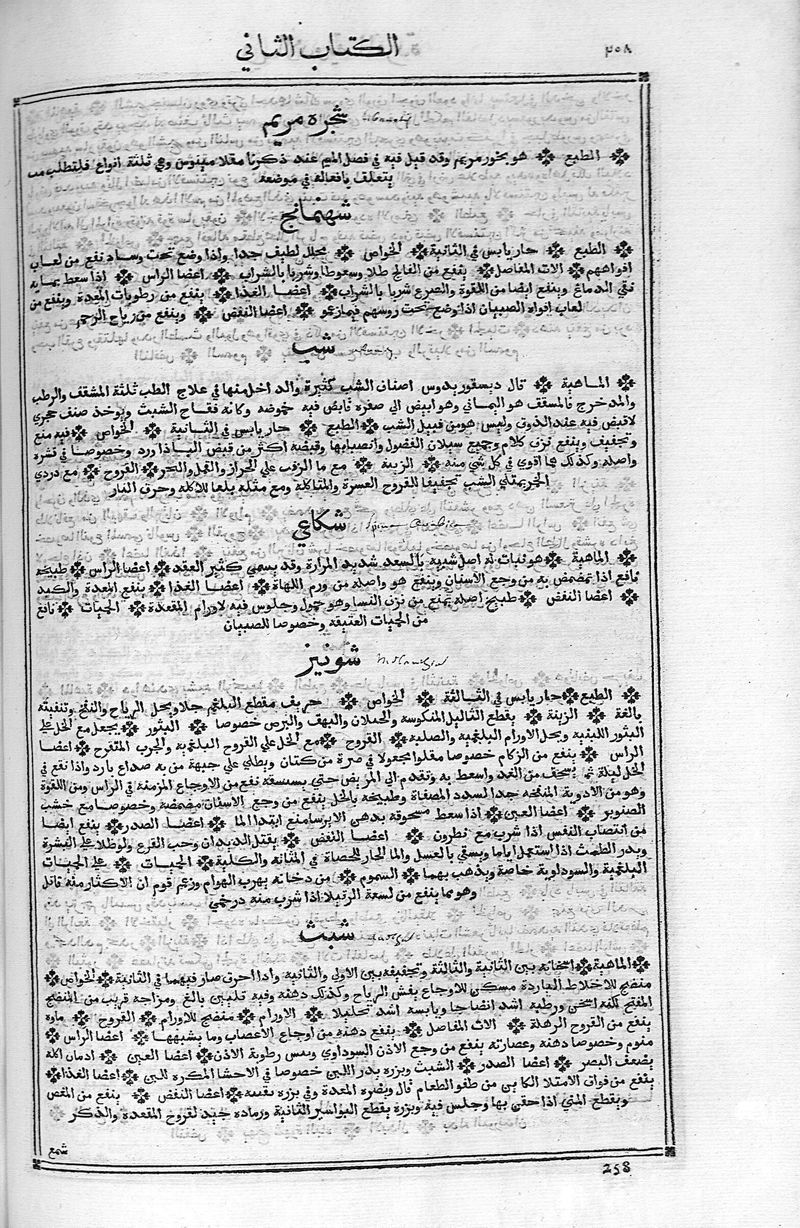 ٢٥٨ الكتاب الثاني
شجرة مريم
الطبع هو بخور مريم وقد قيل فيه في فصل الميم عند ذكرنا مقلامينوس وهي ثلثة انواع فلتطلب ما
يتعلق بافعاله في موضعه
شهبانج
الطبع حار يابس في الثانية الخواص محلل لطيف جدا واذا وضع تحت وساد نفع من لعاب
افواههم الات المفاصل ينفع من الفالج طلا وسعوطا وشربا بالشراب اعضا الراس اذا سعط بمايه
نقي الدماغ وينفع ايضا من اللقوة والصرع شربا بالشراب اعضا الغذا ينفع من رطوبات المعدة وينفع من
لعاب افواه الصبيان اذا وضع تحت روسهم اعضا النفض وينفع من رياح الرحم
شب
الماهية قال ديسقوريدوس اصناف الشب كثيرة والداخل منها في علاج الطب ثلثة المشقق والرطب
والمدحرج فالمشقق هو اليماني وهو ابيض الي صفرة قابض فيه حموضة وكانه فقاح الشب ويوخذ صنف حجري
لا قبض فيه عند الذوق وليس هو من قبيل الشب الطبع حار يابس في الثانية الخواص فيه منع
وتجفيف وينفع نزف كل دم وجميع سيلان الفضول وانصبابها وقبضه اكثر من قبض الباذاورد وخصوصا في قشره
واصله وكذلك هما اقوي في كل شي منه الزينة مع ما الزفت علي الحزاز والقمل والبخر القروح مع دردي
الخمر بمثلي الشب تجفيفا للقروح العسرة والمتاكلة ومع مثله ملحا للاكلة وحرق النار
شكاعي
الماهية هو نبات له اصل شبيه بالسعد شديد المرارة وقد يسمي كثير العقد اعضا الراس طبيخه
نافع اذا تمضمض به من وجع الاسنان وينفع هو واصله من ورم اللهاة اعضا الغذا ينفع المعدة والكبد
اعضا النفض طبيخ اصله يمنع من نزف النسا وهو حمول وجلوس فيه لاورام المقعدة الحميات نافع
من الحميات العتيقة وخصوصا للصبيان
شونيز
الطبع حار يابس في الثالثة الخواص حريف مقطع البلغم جلا ويحل الرياح والنفخ وتنقيته
بالغة الزينة يقطع الثاليل المنكوسة والخيلان والبهق والبرص خصوصا البثور يجعل مع الخل علي
البثور اللبنية ويحل الاورام البلغمية والصلبة القروح مع الخل علي القروح البلغمية والجرب المتقرح اعضا
الراس ينفع من الزكام خصوصا مقلوا مجعولا في صرة من كتان ويطلي علي جبهة من به صداع بارد واذا نقع في
الخل ليلة ثم سحق من الغد واسعط به وتقدم الي المريض حتي يستنشقه نفع من الاوجاع المزمنة في الراس ومن اللقوة
وهو من الادوية المفتحة جدا لسدد المصفاة وطبيخه بالخل ينفع من وجع الاسنان مضمضة وخصوصا مع خشب
الصنوبر اعضا العين اذا سعط مسحوقه بدهن الايرسا منع ابتدا الما اعضا الصدر ينفع ايضا
من انتصاب النفس اذا شرب مع نطرون اعضا النفض يقتل الديدان وحب القرع ولو طلا علي السرة
ويدر الطمث اذا استعمل اياما ويسقي بالعسل والما الحار للحصاة في المثانة والكلية الحميات علي الحميات
البلغمية والسوداوية خاصة ويذهب بهما السموم من دخانه يهرب الهوام وزعم قوم ان الاكثار منه قاتل
وهو مما ينفع من لسعة الرتيلا اذا شرب منه درخمي
شبث
الماهية اسخانه بين الثانية والثالثة وتجفيفه بين الاولي والثانية واذا احرق صار فيهما في الثانية الخواص
منضج للاخلاط الباردة مسكن للاوجاع يفش الرياح وكذلك دهنه وفيه تليين بالغ ومزاجه قريب من المنضج
المفتح لكنه اسخن ورطبه اشد انضاجا ويابسه اشد تحليلا الاورام منضج للاورام القروح ماده
ينفع من القروح الرهلة الات المفاصل ينفع دهنه من اوجاع الاعصاب وما يشبهها اعضا الراس
منوم وخصوصا دهنه وعصارته ينفع من وجع الاذن السوداوي وييبس رطوبة الاذن اعضا العين ادمان اكله
يضعف البصر اعضا الصدر الشبث وبزره يدر اللبن خصوصا في الاحشا المكره للبن اعضا الغذا
ينفع من فواق الامتلا الكاين من طفو الطعام قال ويضر بالمعدة وفي بزره تغثية اعضا النفض ينفع من المغص
ويقطع المني اذا حقن بها وجلس فيه وبزره يقطع البواسير الناتية ورماده جيد لقروح المقعدة والذكر
شمع
258